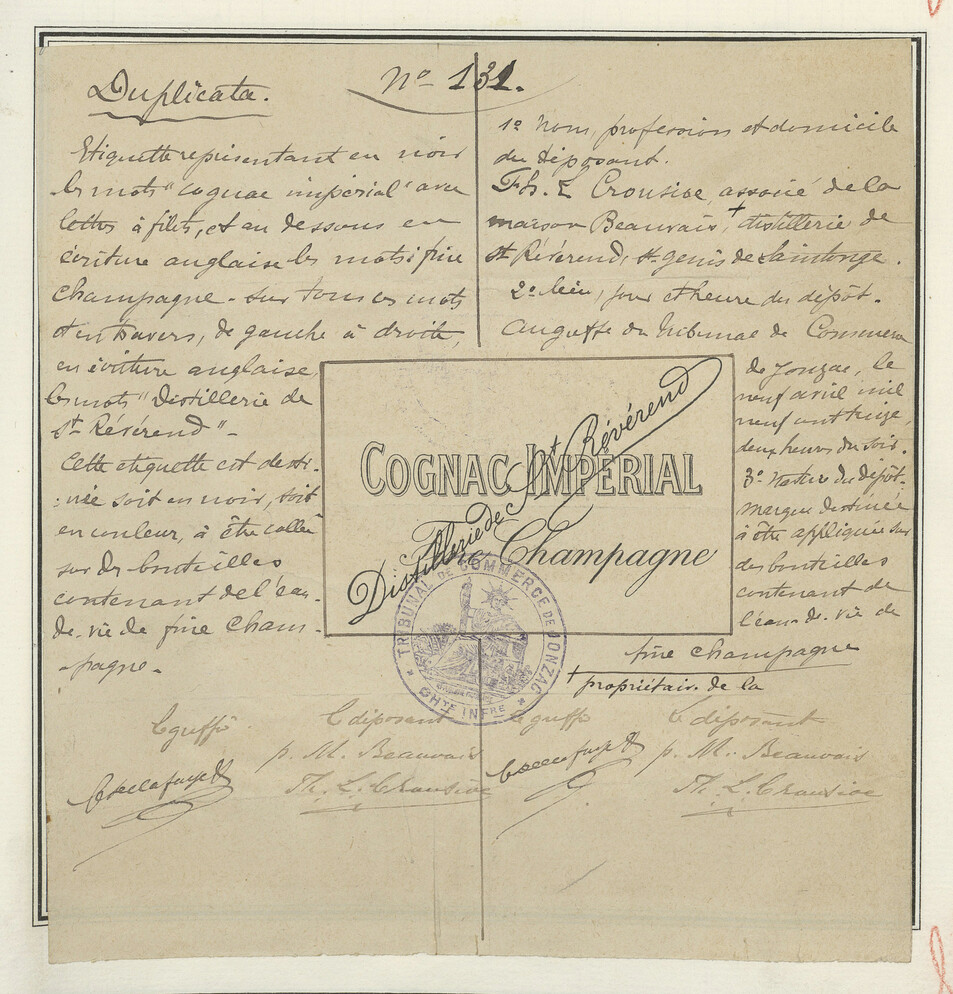 Duplicata.
N° 131.
Etiquette représentant en noir
les mots "cognac impérial" avec
lettres à filets, et au dessous en
écriture anglaise les mots: fine
champagne - sur tous ces mots
et en travers, de gauche à droite,
en écriture anglaise
les mots "Distillerie de
St Révérend" -
Cette étiquette est desti-
-née soit en noir, soit
en couleur, à être collée
sur des bouteilles
contenant de l'eau-
de-vie de fine Cham-
-pagne -
1° Nom, profession et domicile
du déposant.
Th. L. Crousioe, associé de la
maison Beauvais, + distillerie de
St Révérend, St genis de Saintonge.
2° lieu, jour et heure du dépôt.
Au greffe du Tribunal de Commerce
de Jonzac, le
neuf avril mil
neuf cent treize
deux heures du soir.
3° Nature du dépôt-
marque destinée
à être appliquée sur
des bouteilles
contenant de
l'eau-de-vie de
fine champagne
+ propriétaire de la
COGNAC IMPÉRIAL
Fine Champagne
Distillerie de St Révérend
TRIBUNAL DE COMMERCE DE JONZAC
CHTE INFRE
Le greffier
Le déposant
p. M. Beauvais
Th. L. Crousioe
Le greffier
Le déposant
p. M. Beauvais
Th. L. Crousioe